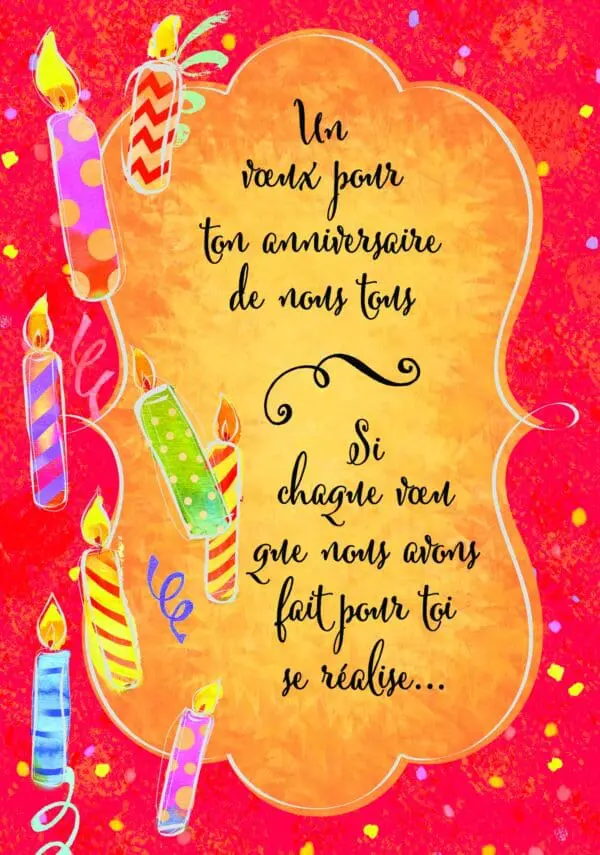 Un
vœux pour
ton anniversaire
de nous tous
Si
chaque vœu
que nous avons
fait pour toi
se réalise...